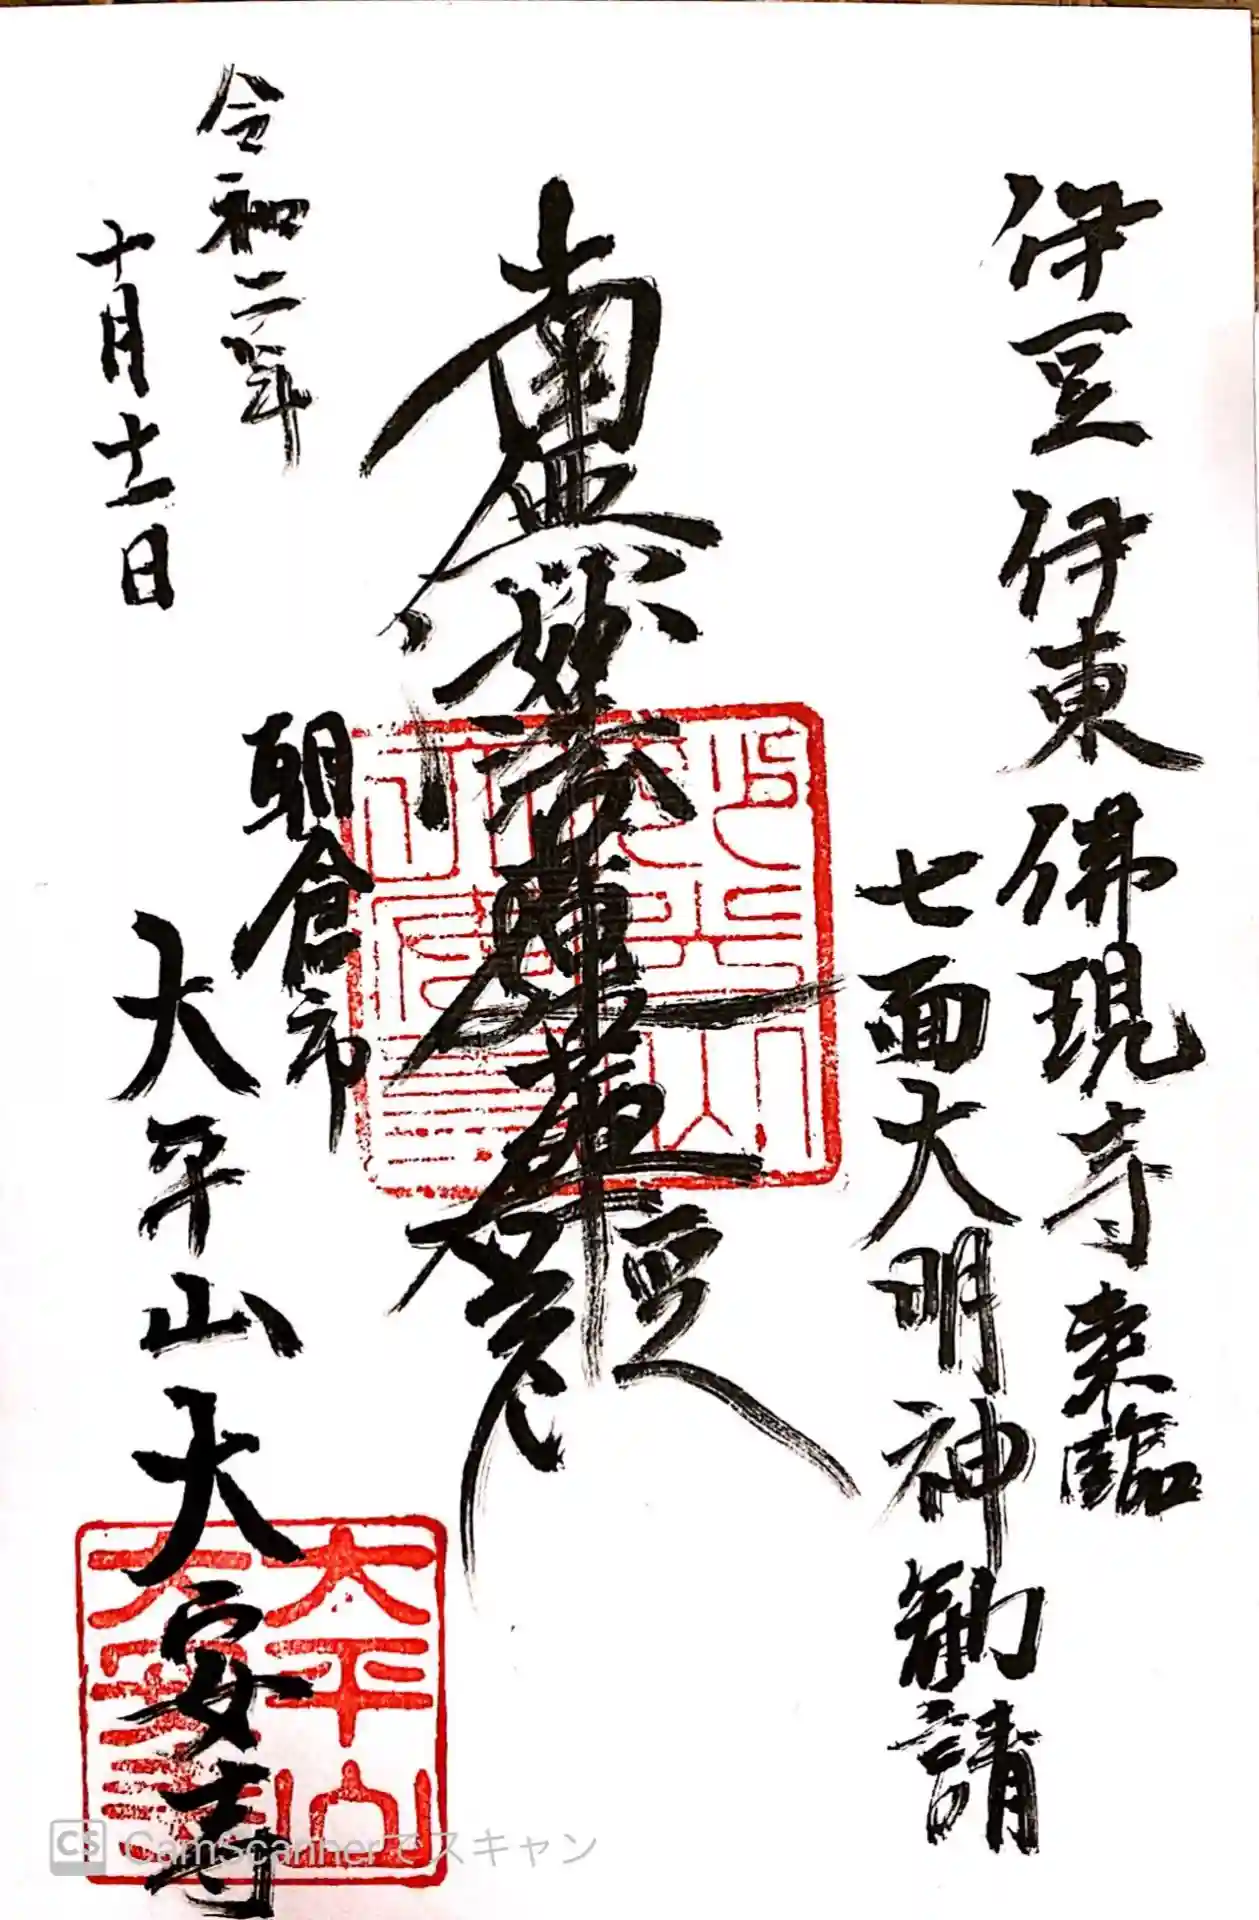 伊豆伊東佛現寺来臨
七面大明神勧請
南無妙法蓮華経
令和二年
十月十一日
朝倉市
大平山大安寺
大平山
大安寺
CS CamScannerでスキャン